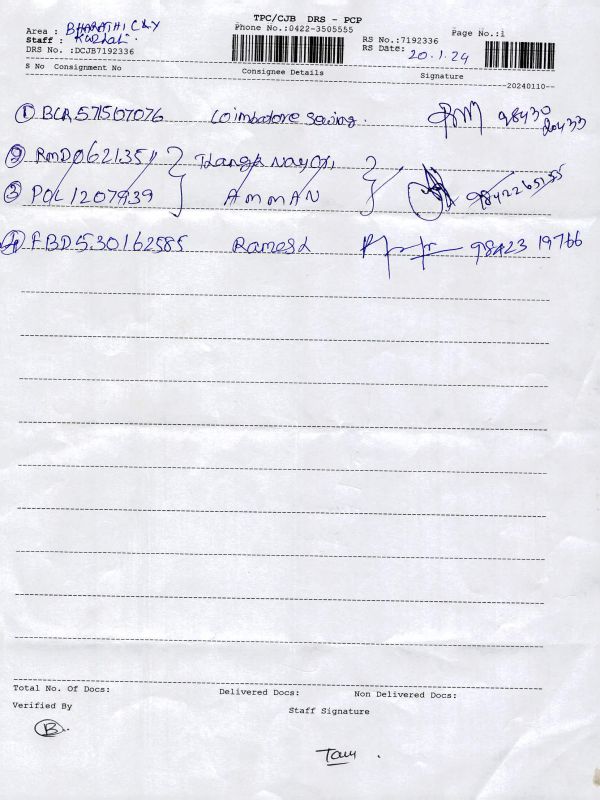 TPC/CJB DRS - PCP
Area : BHARATHI C&Y Phone No.:0422-3505555 RS No.:7192336 Page No.:1
Staff : RS Date: 20.1.24
DRS No. :DCJB7192336
S No Consignment No Consignee Details Signature
--20240110--
① BCR571507076 Coimbatore Sewing. 98430 20433
② RMD0621351 Thanga Nayagi
③ POL1207939 AMMAN 9842265155
④ FBD530162585 Ramesh 98423 19766
Total No. Of Docs: Delivered Docs: Non Delivered Docs:
Verified By Staff Signature
B.